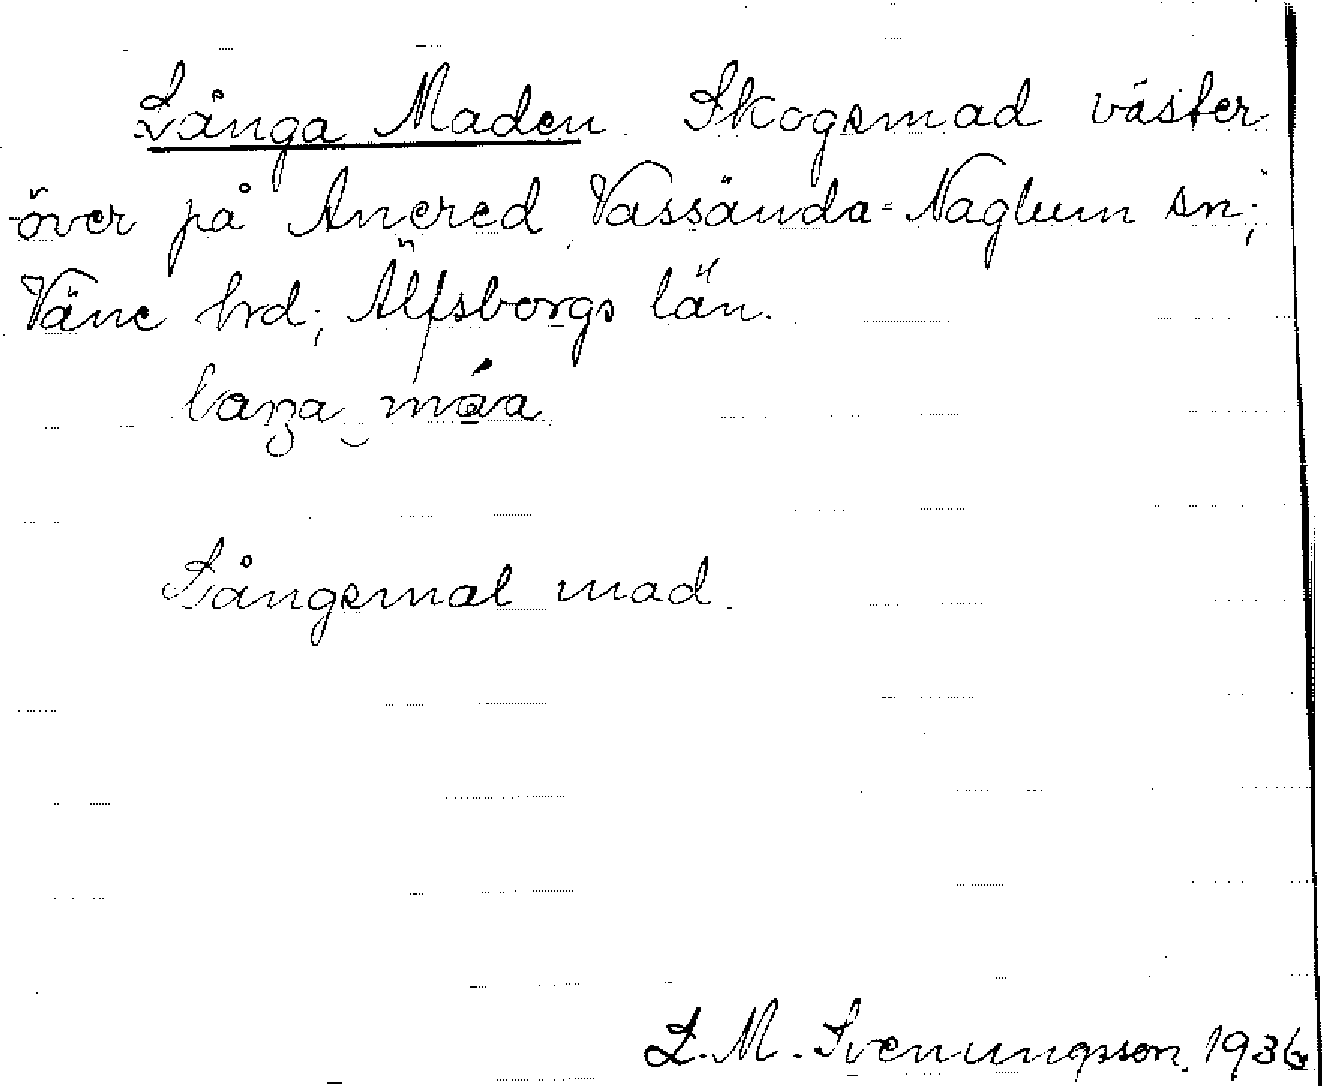 Långa Maden. Skogsmad väster
över på Anered Vassända-Naglum sn;
Väne hrd; Älfsborgs län.
laŋa máa
Långsmal mad.
L. M. Svenungsson. 1936